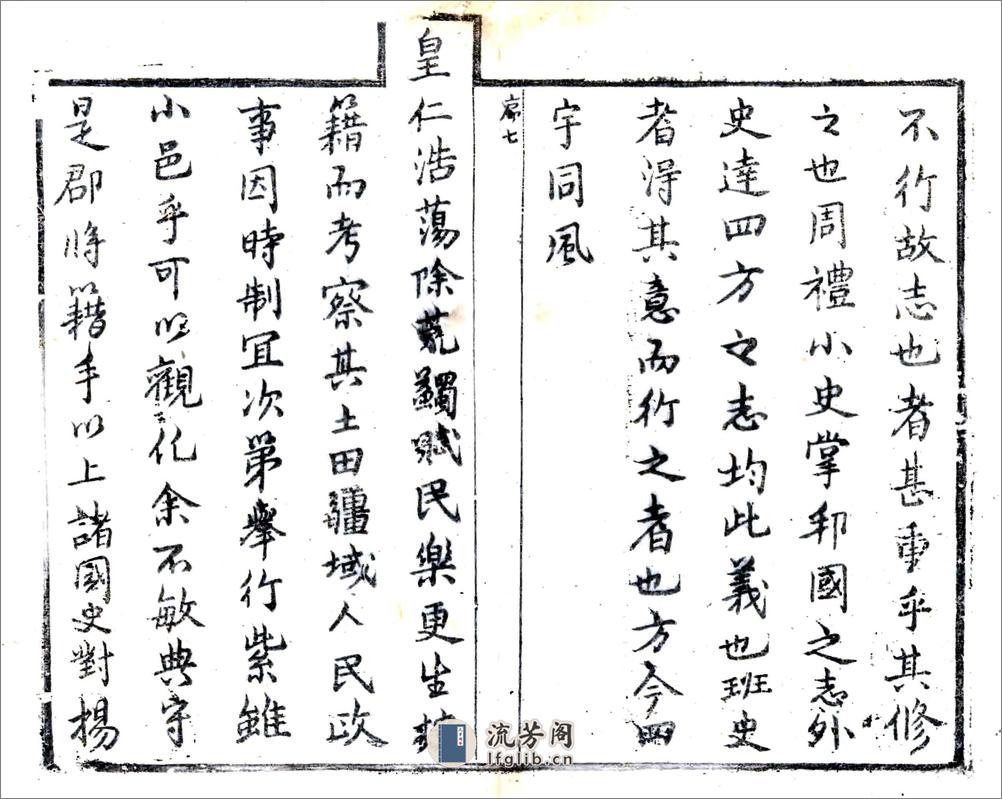 不行故志也者甚重乎其修
之也周禮小史掌邦國之志外
史達四方之志均此義也班史
者得其意而行之者也方今四
宇同風
序七
皇仁浩蕩除荒蠲賦民樂更生
籍而考察其土田疆域人民政
事因時制宜次第舉行紫雖
小邑乎可以觀化余不敏典守
是郡將以籍手以上諸國史對揚
流芳阁
lfglib.cn